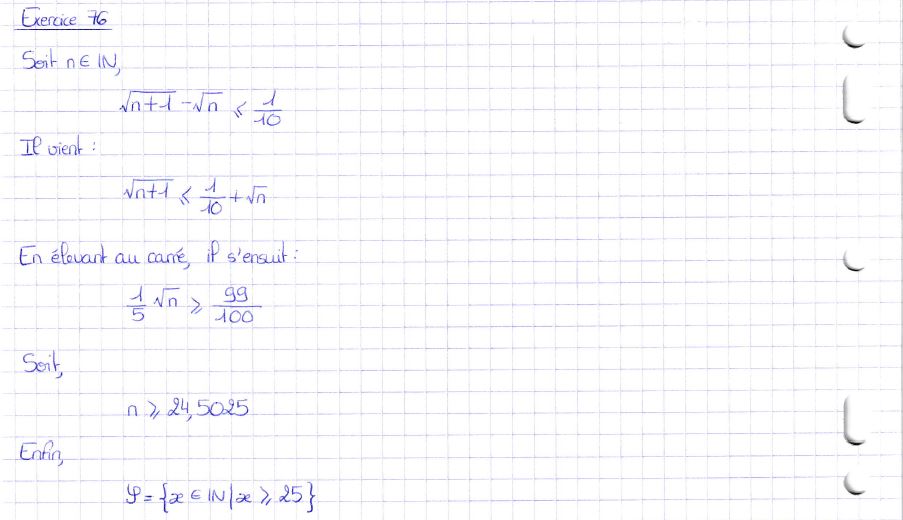 Exercice 76
Soit n ∈ ℕ,
√(n+1) - √n ⩽ 1/10
Il vient :
√(n+1) ⩽ 1/10 + √n
En élevant au carré, il s'ensuit :
1/5 √n ⩾ 99/100
Soit,
n ⩾ 24,5025
Enfin,
𝒮 = {x ∈ ℕ | x ⩾ 25}